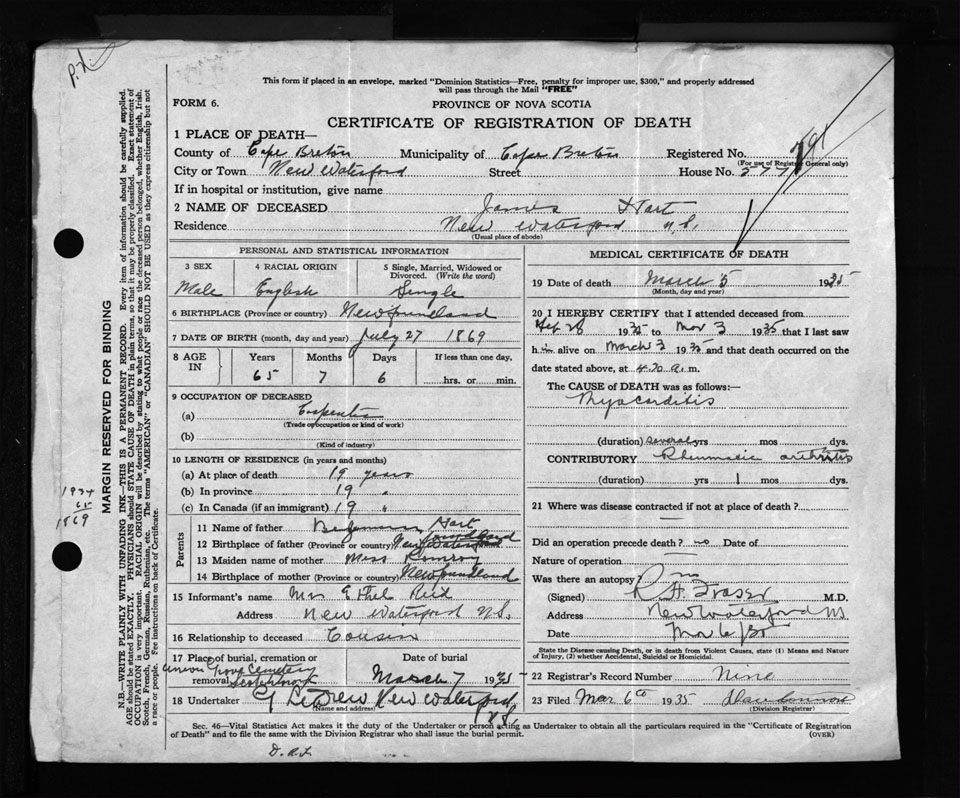 P.H.
This form if placed in an envelope, marked "Dominion Statistics—Free, penalty for improper use, $300," and properly addressed
will pass through the Mail "FREE"
FORM 6.
PROVINCE OF NOVA SCOTIA
CERTIFICATE OF REGISTRATION OF DEATH
1 PLACE OF DEATH—
County of Cape Breton Municipality of Cape Breton Registered No.
(For use of Registrar General only)
City or Town New Waterford Street House No.
If in hospital or institution, give name
2 NAME OF DECEASED James Hart
Residence New Waterford N.S.
(Usual place of abode)
PERSONAL AND STATISTICAL INFORMATION
3 SEX Male
4 RACIAL ORIGIN English
5 Single, Married, Widowed or Divorced. (Write the word) Single
6 BIRTHPLACE (Province or country) Newfoundland
7 DATE OF BIRTH (month, day and year) July 27 1869
8 AGE IN Years 65 Months 7 Days 6 If less than one day, hrs. or min.
9 OCCUPATION OF DECEASED
(a) Carpenter
(Trade occupation or kind of work)
(b)
(Kind of industry)
10 LENGTH OF RESIDENCE (in years and months)
(a) At place of death 19 years
(b) In province 19 "
(c) In Canada (if an immigrant) 19 "
Parents
11 Name of father Benjamin Hart
12 Birthplace of father (Province or country) Newfoundland
13 Maiden name of mother Miss
14 Birthplace of mother (Province or country) Newfoundland
15 Informant's name Mrs Ethel Reid
Address New Waterford N.S.
16 Relationship to deceased Cousin
17 Place of burial, cremation or removal Grove Cemetery
Date of burial March 7 1935
18 Undertaker New Waterford N.S.
(Name and address)
MEDICAL CERTIFICATE OF DEATH
19 Date of death March 5 1935
(Month, day and year)
20 I HEREBY CERTIFY that I attended deceased from
1935 to Mar 3 1935 that I last saw
him alive on March 3 1935 and that death occurred on the
date stated above, at a.m.
The CAUSE of DEATH was as follows:—
Myocarditis
(duration) several yrs mos dys.
CONTRIBUTORY Rheumatic arthritis
(duration) yrs 1 mos dys.
21 Where was disease contracted if not at place of death?
Did an operation precede death? no Date of
Nature of operation
Was there an autopsy no
(Signed) Fraser M.D.
Address New Waterford NS
Date Mar 6/35
State the Disease causing Death, or in death from Violent Causes, state (1) Means and Nature
of Injury, (2) whether Accidental, Suicidal or Homicidal.
22 Registrar's Record Number Nine
23 Filed Mar 6th 1935
(Division Registrar)
Sec. 46—Vital Statistics Act makes it the duty of the Undertaker or person acting as Undertaker to obtain all the particulars required in the "Certificate of Registration
of Death" and to file the same with the Division Registrar who shall issue the burial permit.
(OVER)
MARGIN RESERVED FOR BINDING
N.B.—WRITE PLAINLY WITH UNFADING INK—THIS IS A PERMANENT RECORD. Every item of information should be carefully supplied.
AGE should be stated EXACTLY. PHYSICIANS should STATE CAUSE OF DEATH in plain terms, so that it may be properly classified. Exact statement of
OCCUPATION is very important. RACIAL ORIGIN will be described by stating to what people or race the deceased person belonged, whether English, Irish,
Scotch, French, German, Russian, Ruthenian, etc. The terms "AMERICAN" or "CANADIAN" SHOULD NOT BE USED as they express citizenship but not
a race or people. See instructions on back of Certificate.
1934
65
1869